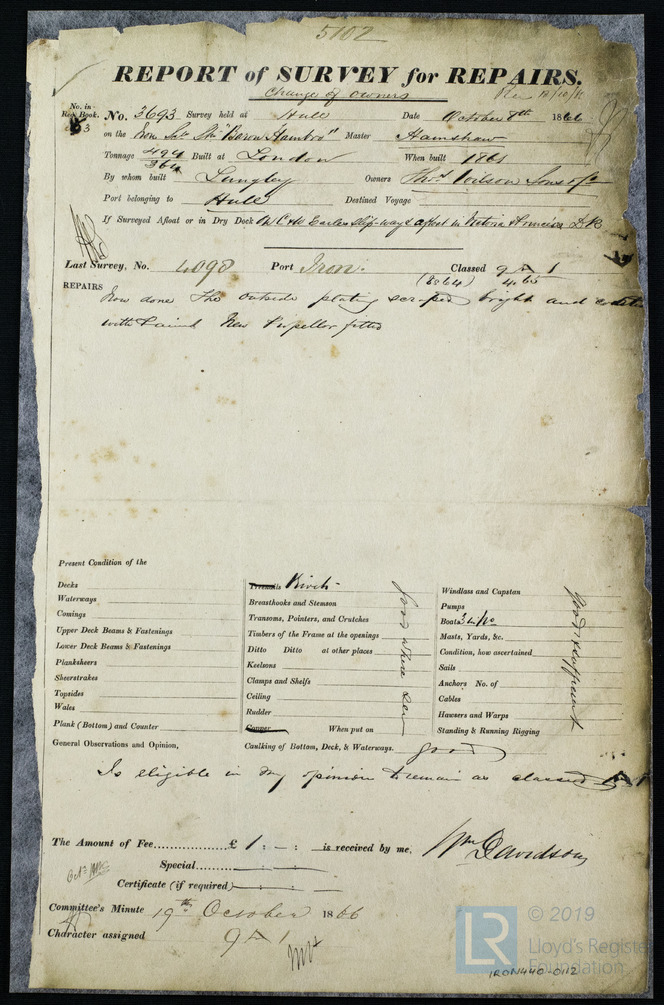 5102
REPORT of SURVEY for REPAIRS.
Change of Owners
No. in Reg. Book.
No. 3693 Survey held at Hull Date October 8th 1866
on the Iron Scr Str "Baron Hambro" Master Hamshaw
Tonnage 494 364 Built at London When built 1861
By whom built Langley Owners Thos Wilson Sons & Co
Port belonging to Hull Destined Voyage
If Surveyed Afloat or in Dry Dock On C & W Earles Slip-way & afloat in Victoria
Last Survey, No. 4098 Port Iron. Classed 9 A 1
(8864) 4.65
REPAIRS Now done The outside plating scraped bright and coated
with Paint New Propellor fitted
Present Condition of the
Decks
Waterways
Comings
Upper Deck Beams & Fastenings
Lower Deck Beams & Fastenings
Planksheers
Sheerstrakes
Topsides
Wales
Plank (Bottom) and Counter
Treenails Rivets
Breasthooks and Stemson
Transoms, Pointers, and Crutches
Timbers of the Frame at the openings
Ditto Ditto at other places
Keelsons
Clamps and Shelfs
Ceiling
Rudder
Copper When put on
Caulking of Bottom, Deck, & Waterways. good
good where seen
Windlass and Capstan
Pumps
Boats 3 in No
Masts, Yards, &c.
Condition, how ascertained
Sails
Anchors No. of
Cables
Hawsers and Warps
Standing & Running Rigging
good & sufficient
General Observations and Opinion,
Is eligible in my opinion to remain as classed 9 A 1
The Amount of Fee............£ 1 : - : is received by me,
Wm Davidson
Special
Certificate (if required)
Committee's Minute 19th October 1866
Character assigned 9 A 1
© 2019
LR
Lloyd's Register
Foundation
IRON440-0112